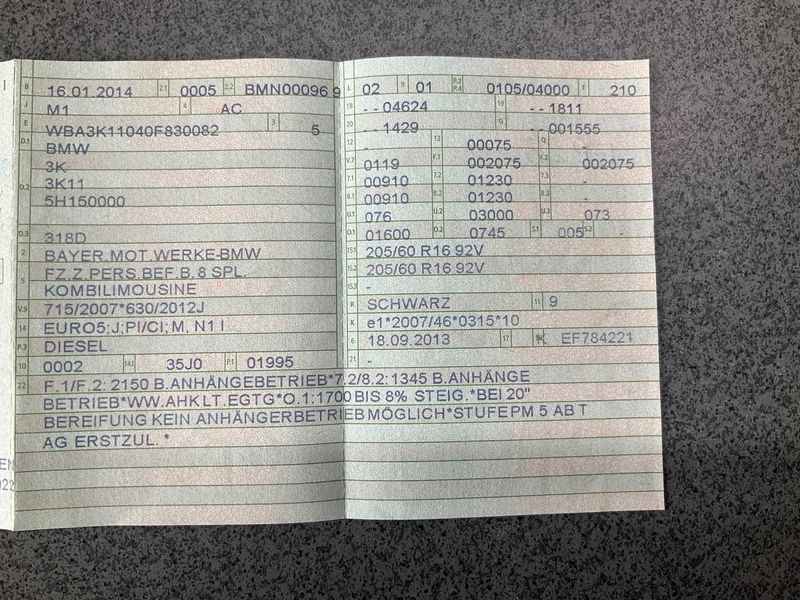 B 16.01.2014 2.1 0005 2.2 BMN00096 9
J M1 4 AC
E WBA3K11040F830082 3 5
D.1 BMW
3K
D.2 3K11
5H150000
D.3 318D
2 BAYER.MOT.WERKE-BMW
5 FZ.Z.PERS.BEF.B. 8 SPL.
KOMBILIMOUSINE
V.9 715/2007*630/2012J
14 EURO5;J;PI/CI; M, N1 I
P.3 DIESEL
10 0002 14.1 35J0 P.1 01995
22 F.1/F.2: 2150 B.ANHÄNGEBETRIEB*7.2/8.2: 1345 B.ANHÄNGE
BETRIEB*WW.AHK LT.EGTG*O.1:1700 BIS 8% STEIG.*BEI 20"
BEREIFUNG KEIN ANHÄNGERBETRIEB MÖGLICH*STUFE PM 5 AB T
AG ERSTZUL. *
L 02 9 01 P.2 P.4 0105/04000 T 210
18 - - 04624 19 - - 1811
20 - - 1429 G - - 001555
12 - 13 00075 Q -
V.7 0119 F.1 002075 F.2 002075
7.1 00910 7.2 01230 7.3 -
8.1 00910 8.2 01230 8.3 -
U.1 076 U.2 03000 U.3 073
O.1 01600 O.2 0745 S.1 005 S.2 -
15.1 205/60 R16 92V
15.2 205/60 R16 92V
15.3 -
R SCHWARZ 11 9
K e1*2007/46*0315*10
6 18.09.2013 17 K EF784221
21 -